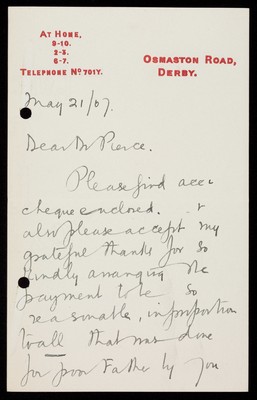 AT HOME,
9-10.
2-3.
6-7.
TELEPHONE No 701Y.
OSMASTON ROAD,
DERBY.
May 21/07.
Dear Dr Pierce.
Please find acct
cheque enclosed. &
also please accept my
grateful thanks for so
kindly arranging the
payment to be so
reasonable, in proportion
to all that was done
for poor Father by you